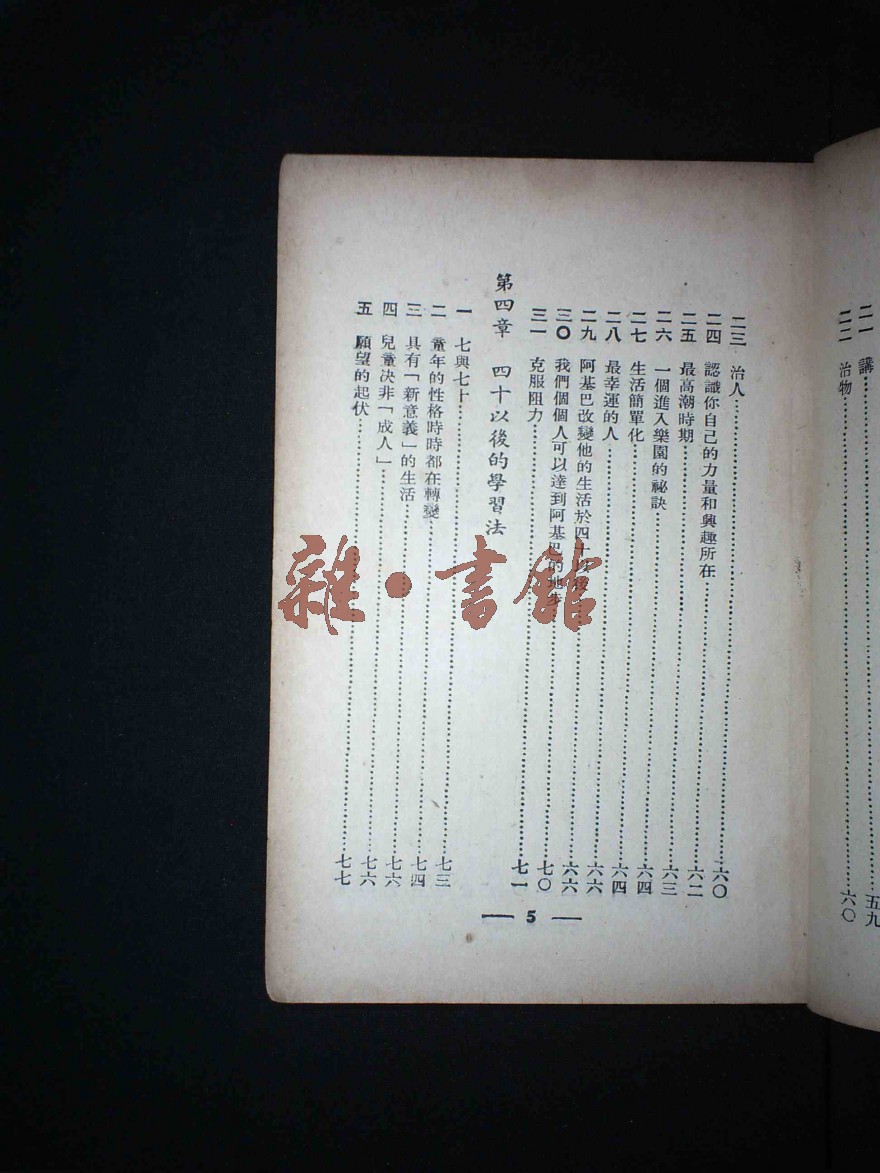 二一 講……五九
二二 治物……六〇
二三 治人……六〇
二四 認識你自己的力量和興趣所在……六二
二五 最高潮時期……六三
二六 一個進入樂園的祕訣……六四
二七 生活簡單化……六四
二八 最幸運的人……六六
二九 阿基巴改變他的生活於四十以後……六六
三〇 我們個個人可以達到阿基巴的地步……七〇
三一 克服阻力……七一
第四章 四十以後的學習法
一 七與七十……七三
二 童年的性格時時都在轉變……七四
三 具有「新意義」的生活……七六
四 兒童決非「成人」……七六
五 願望的起伏……七七
— 5 —
雜·書館